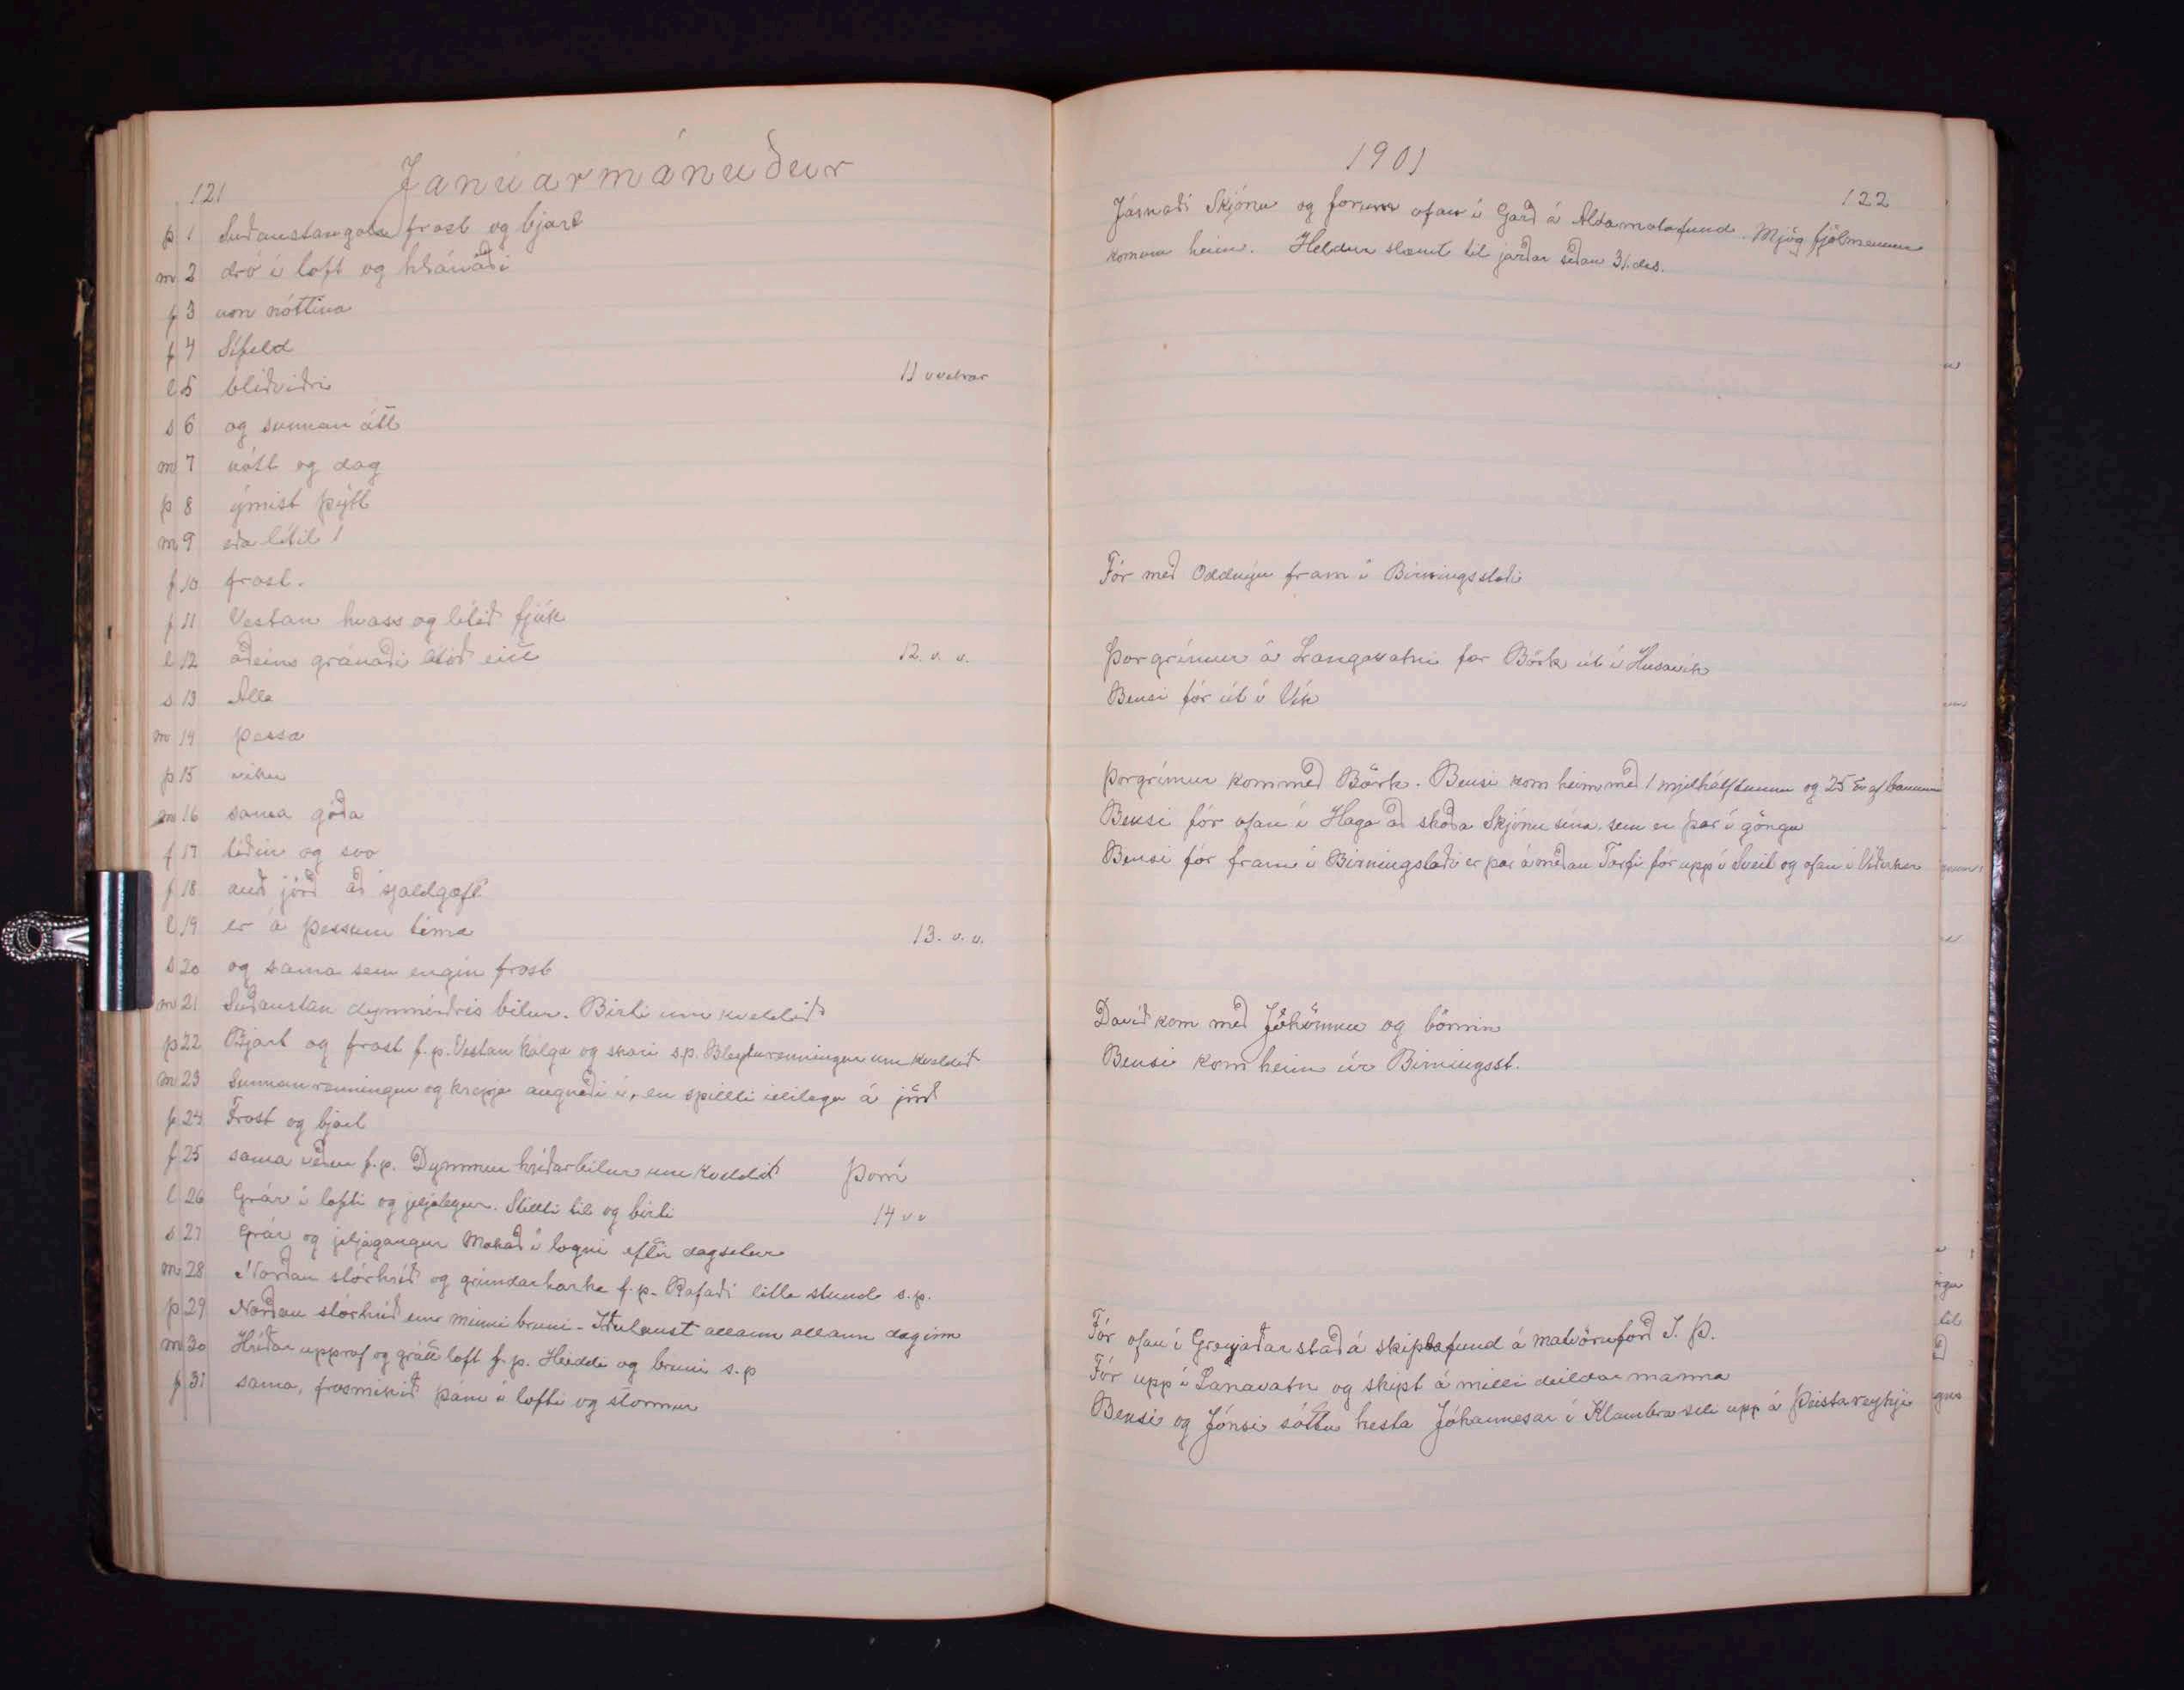 121 Janúarmánuður
þ 1 Suðaustangola frost og bjart
m 2 dró í loft og hránaði
f 3 um nóttina
f 4 Sífeld
l 5 blíðviðri 11 v vetrar
s 6 og sunnan átt
m 7 nótt og dag
þ 8 ýmist þýtt
m 9 eða lítil 1
f 10 frost.
f 11 Vestan hvass og lítið fjúk
l 12 aðeins gránaði lítið eitt 12. v. v.
s 13 Alla
m 14 þessa
þ 15 viku
m 16 sama góða
f 17 tíðin og svo
f 18 auð jörð að sjaldgæft
l 19 er á þessum tíma 13. v. v.
s 20 og sama sem engin frost
m 21 Suðaustan dymmviðris bilur. Birti um kveldið
þ 22 Bjart og frost f.p. Vestan kálga og skari s.p. Bleyturenningur um kveldið
m 23 Sunnanrenningur og krepja augnði í, en spillti illilega á jörð
f 24 Frost og bjart
f 25 sama veður f.p. Dymmur hríðarbilur um kveldið Þorri
l 26 Grár í lofti og jeljalegur. Stillti til og birti 14 v v
s 27 Grár og jeljagangur Mokað í logni eftir dagsetur
m 28 Norðan stórhríð og grimdarharka f.p. Rofaði litla stund s.p.
þ 29 Norðan stórhríð enn minni bruni - Iðulaust allann allann daginn
m 30 Hríðar upprof og grátt loft f.p. Heiddi og bruni s.p
f 31 sama, frosmikið þám í lofti og stormur
1901
122
Járnaði Skjónu og forum ofan í Garð á Aldamotafund. Mjög fjölmennur
komum heim. Heldur slæmt til jarðar síðan 31. des.
Fór með Oddnýu fram í Birningsstaði
Þorgrímur á Langavatni for Börk út í Husavík
Bensi fór út í Vík
Þorgrímur kom með Börk. Bensi kom heim með 1 mjelhálftunnu og 25 af baunum
Bensi fór ofan í Haga að skoða Skjónu sína. sem er þar í göngu
Bensi fór fram í Birningstaði er þar á meðan Torfi fór upp í Sveit og ofan í Víðirker
Davíð kom með Jóhönnu og börnin
Bensi kom heim úr Birningsst.
Fór ofan í Grenjaðarstað á skiptafund á matvöruforð S. Þ.
Fór upp í Lanavatn og skipt á milli deildar manna
Bensi og Jónsi sóttu hesta Jóhannesar í Klambraseli upp á Þeistareykji